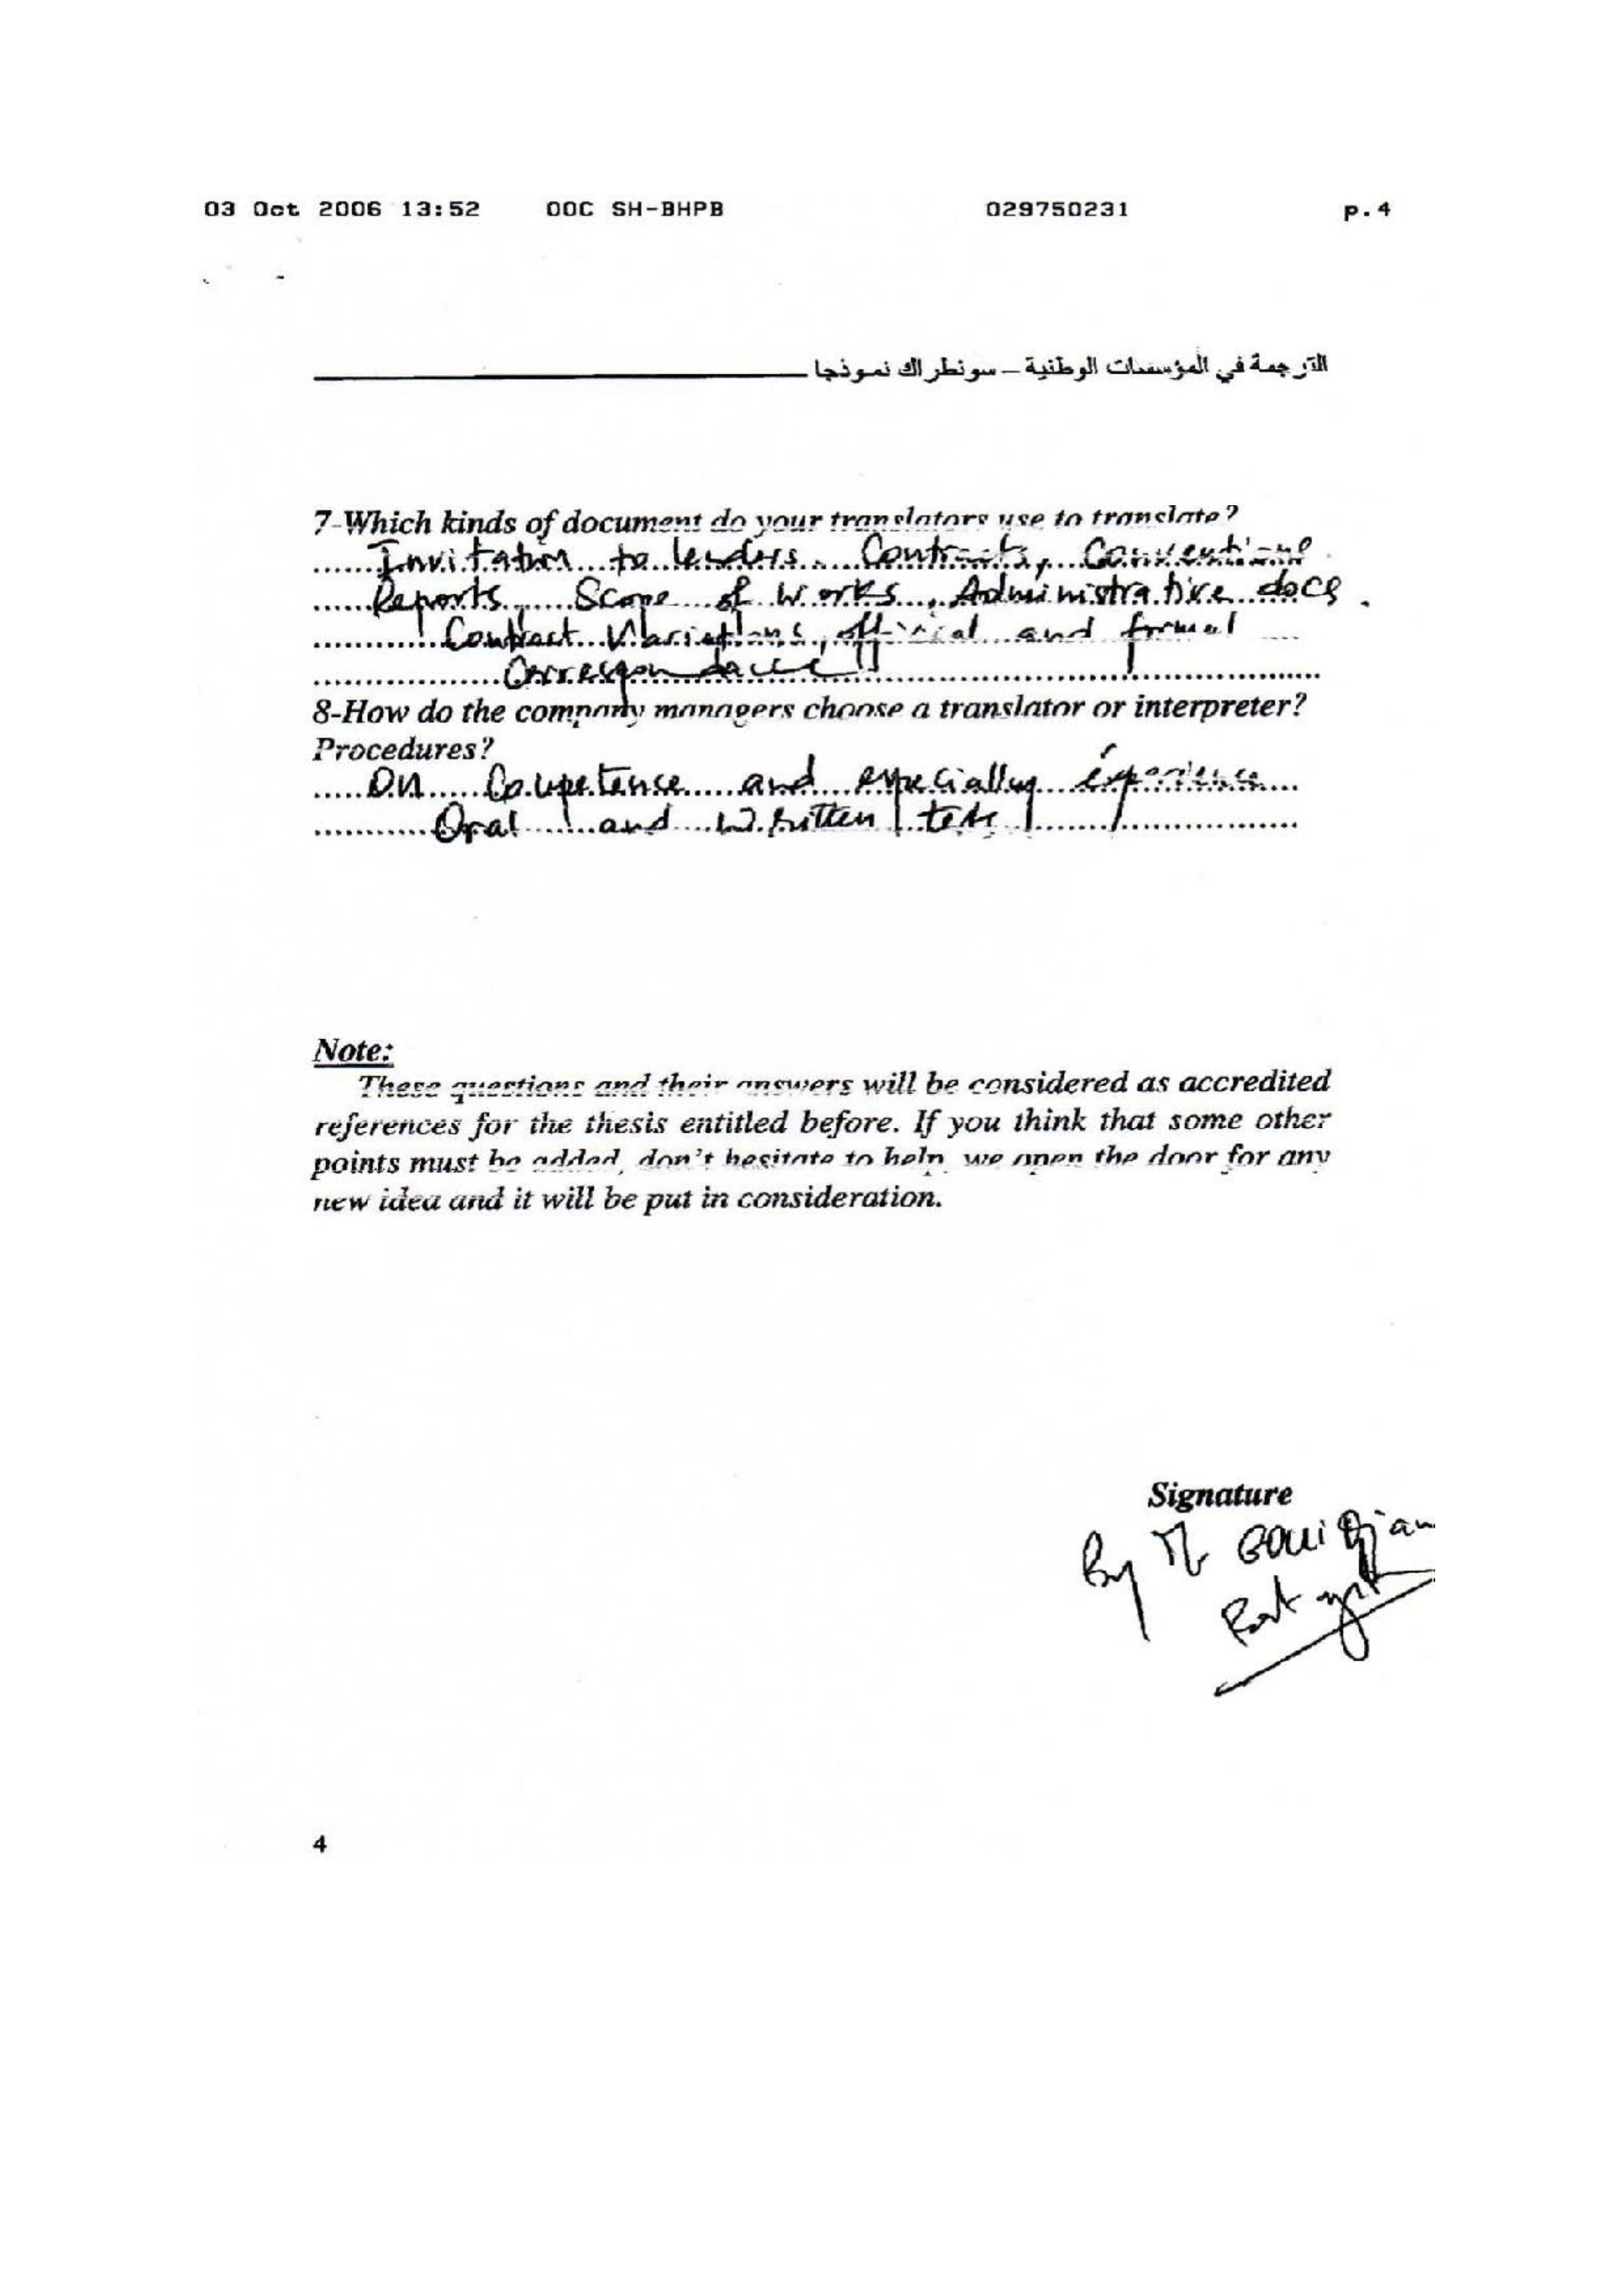 03 Oct 2006 13:52 OOC SH-BHPB 029750231 p.4
الترجمة في المؤسسات الوطنية – سونطراك نموذجا
7-Which kinds of document do your translators use to translate?
Invitation to tenders. Contracts, Conventions.
Reports, Scope of works, Administrative docs.
Contract Variations, official and formal
Correspondance
8-How do the company managers choose a translator or interpreter?
Procedures?
On Competence and especially experience
Oral and Written tests
Note:
These questions and their answers will be considered as accredited
references for the thesis entitled before. If you think that some other
points must be added, don't hesitate to help, we open the door for any
new idea and it will be put in consideration.
Signature
By Mr
4